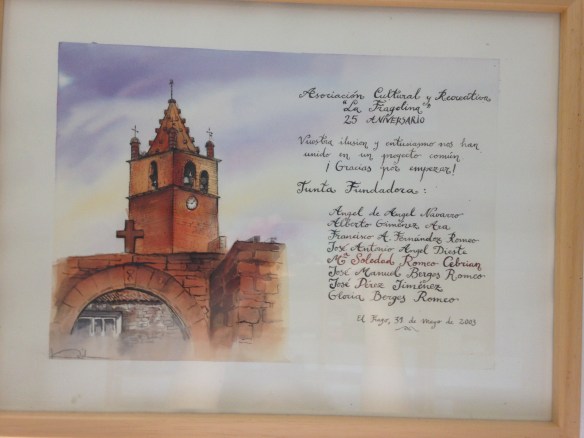 Asociación Cultural y Recreativa
"La Fragolina"
25 ANIVERSARIO
Vuestra ilusion y entusiasmo nos han
unido en un proyecto común
¡ Gracias por empezar!
Junta Fundadora :
Angel de Angel Navarro
Alberto Giménez Aea
Francisco A. Fernández Romeo
José Antonio Angel Dieste
Mª Soledad Romeo Cebrian
José Manuel Berges Romeo
José Pérez Jiménez
Gloria Berges Romeo
El Frago, de Mayo de 2003